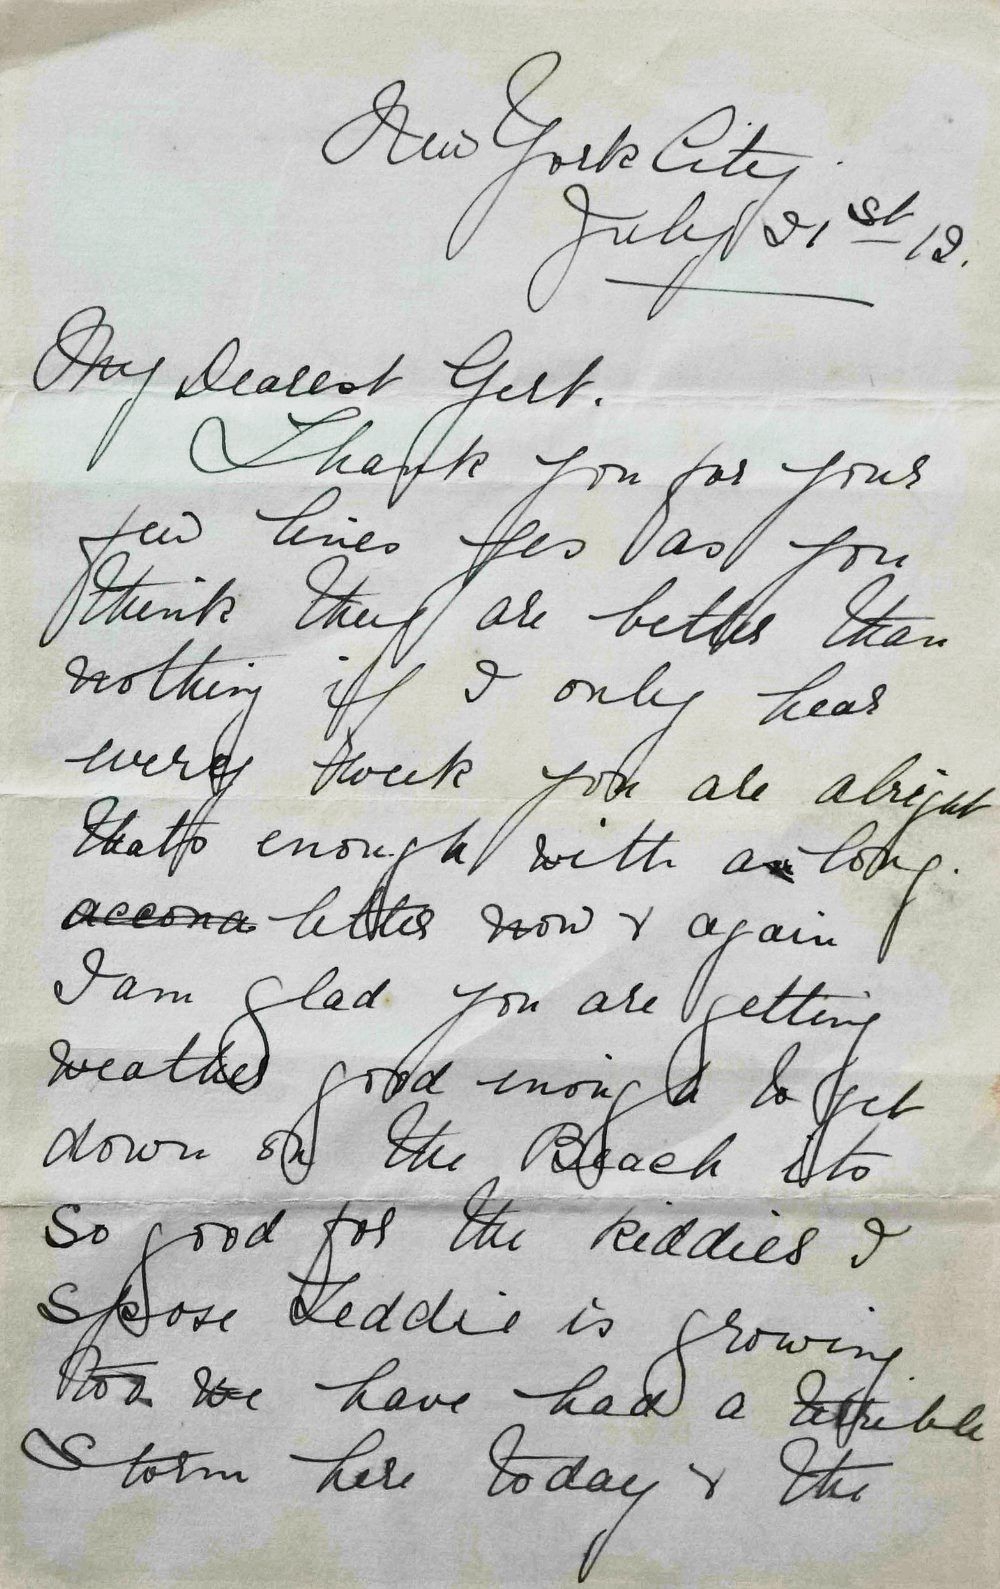 New York City
July 21st/12.
My Dearest Gert.
Thank you for your
few lines yes as you
think they are better than
nothing if I only hear
every week you are alright
thats enough with a long.
accona letter now & again
I am glad you are getting
weather good enough to get
down on the Beach its
so good for the kiddies I
spose Teddie is growing
too we have had a terrible
Storm here today & the